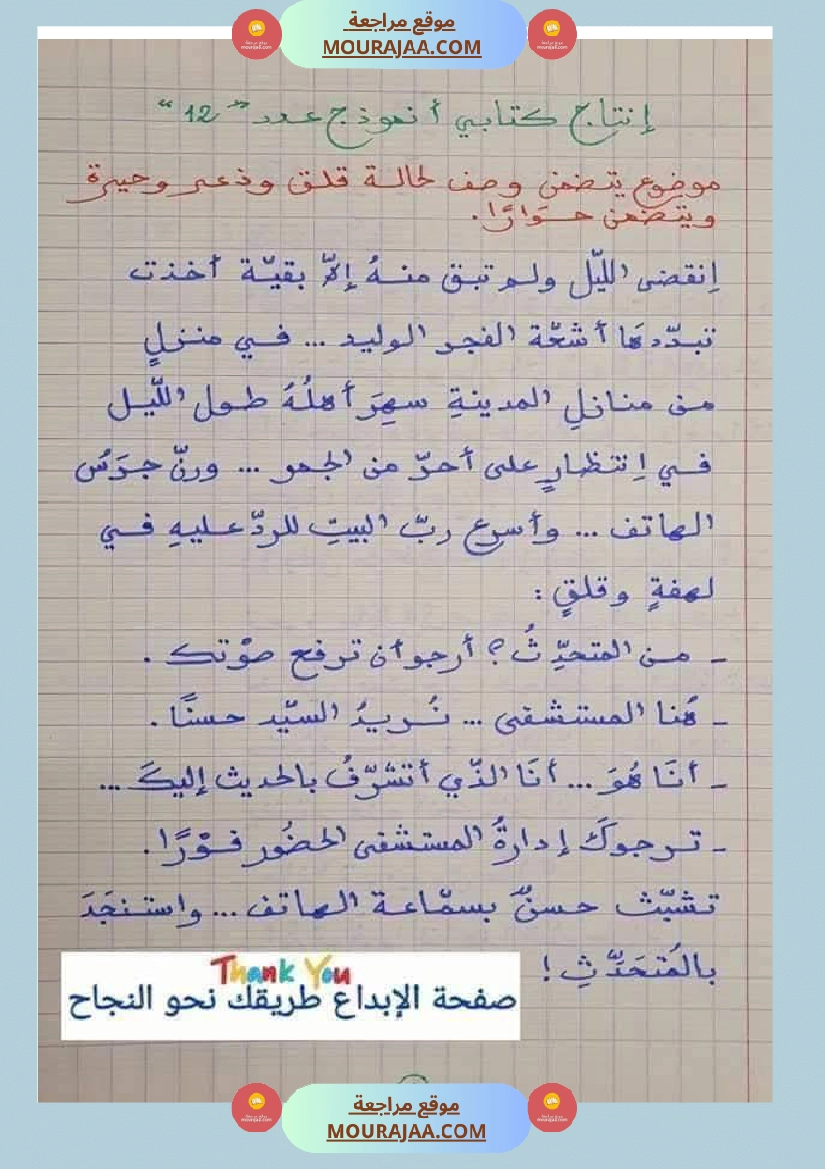 موقع مراجعة
MOURAJAA.COM
إنتاج كتابي أنموذج عدد "12"
موضوع يتضمن وصف لحالة قلق وذعر وحيرة
ويتضمن حوارًا.
اِنقضى اللّيل ولم تبق منهُ إلاّ بقيّة أخذت
تبدّدهَا أشعّة الفجر الوليد ... في منزلٍ
من منازلِ المدينةِ سهِرَ أهلُهُ طول اللّيل
في اِنتظارٍ على أحرّ من الجمر ... ورنّ جرَسُ
الهاتف ... وأسرع ربّ البيتِ للردّ عليهِ في
لهفةٍ وقلقٍ :
- من المتحدِّثُ؟ أرجو أن ترفع صوْتك .
- هُنا المستشفى ... نُريدُ السيّد حسنًا .
- أنَا هُوَ ... أنَا الذّي أتشرّفُ بالحديث إليكَ ...
- ترجوكَ إدارةُ المستشفى الحضُور فوْرًا .
تشبّث حسنٌ بسمّاعة الهاتف ... واستنجَدَ
بالمُتحَدّثِ !
Thank You
صفحة الإبداع طريقك نحو النجاح
موقع مراجعة
MOURAJAA.COM